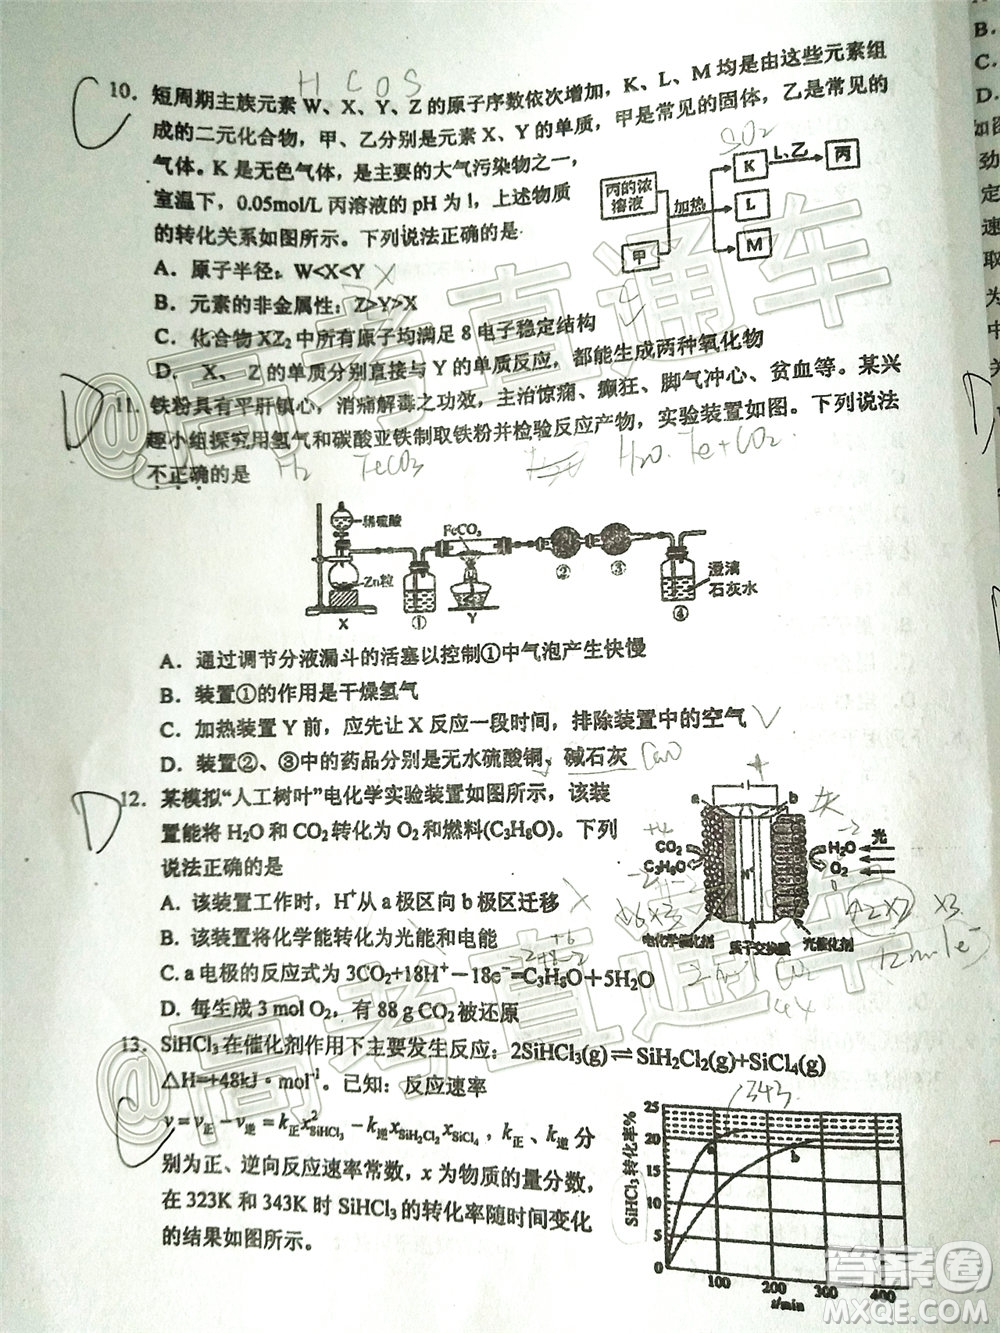 H C O S
C
10. 短周期主族元素 W、X、Y、Z 的原子序数依次增加，K、L、M 均是由这些元素组
成的二元化合物，甲、乙分别是元素 X、Y 的单质，甲是常见的固体，乙是常见的
气体。K 是无色气体，是主要的大气污染物之一，
室温下，0.05mol/L 丙溶液的 pH 为 1，上述物质
的转化关系如图所示。下列说法正确的是
SO2
丙的浓溶液
甲
加热
K
L、乙
丙
L
M
A．原子半径：W<X<Y
B．元素的非金属性：Z>Y>X
C．化合物 XZ2 中所有原子均满足 8 电子稳定结构
D．X、Z 的单质分别直接与 Y 的单质反应，都能生成两种氧化物
D
11. 铁粉具有平肝镇心，消痛解毒之功效，主治惊痫、癫狂、脚气冲心、贫血等。某兴
趣小组探究用氢气和碳酸亚铁制取铁粉并检验反应产物，实验装置如图。下列说法
不正确的是
H2 FeCO3 H2O. Fe+CO2
稀硫酸
Zn粒
X
①
FeCO3
Y
②
③
④
澄清
石灰水
A．通过调节分液漏斗的活塞以控制①中气泡产生快慢
B．装置①的作用是干燥氢气
C．加热装置 Y 前，应先让 X 反应一段时间，排除装置中的空气
D．装置②、③中的药品分别是无水硫酸铜、碱石灰
CaO
D
12. 某模拟“人工树叶”电化学实验装置如图所示，该装
置能将 H2O 和 CO2 转化为 O2 和燃料(C3H8O)。下列
说法正确的是
a
b
CO2
C3H8O
H+
H2O
O2
光
电化学催化剂
质子交换膜
光催化剂
A．该装置工作时，H+从 a 极区向 b 极区迁移
B．该装置将化学能转化为光能和电能
C. a 电极的反应式为 3CO2+18H+－18e−=C3H8O＋5H2O
D．每生成 3 mol O2，有 88 g CO2 被还原
13. SiHCl3 在催化剂作用下主要发生反应：2SiHCl3(g)⇌SiH2Cl2(g)+SiCl4(g)
△H=+48kJ·mol-1。已知：反应速率
v=v正−v逆=k正x²SiHCl3−k逆xSiH2Cl2xSiCl4，k正、k逆分
别为正、逆向反应速率常数，x 为物质的量分数，
在 323K 和 343K 时 SiHCl3 的转化率随时间变化
的结果如图所示。
C
343
SiHCl3转化率%
25
20
15
10
5
0
a
b
100 200 300 400
t/min
@高考直通车
@高考直通车
答案圈
MXQE.COM
B.
C.
D.
如图
劲
定
速
取
为
中
关